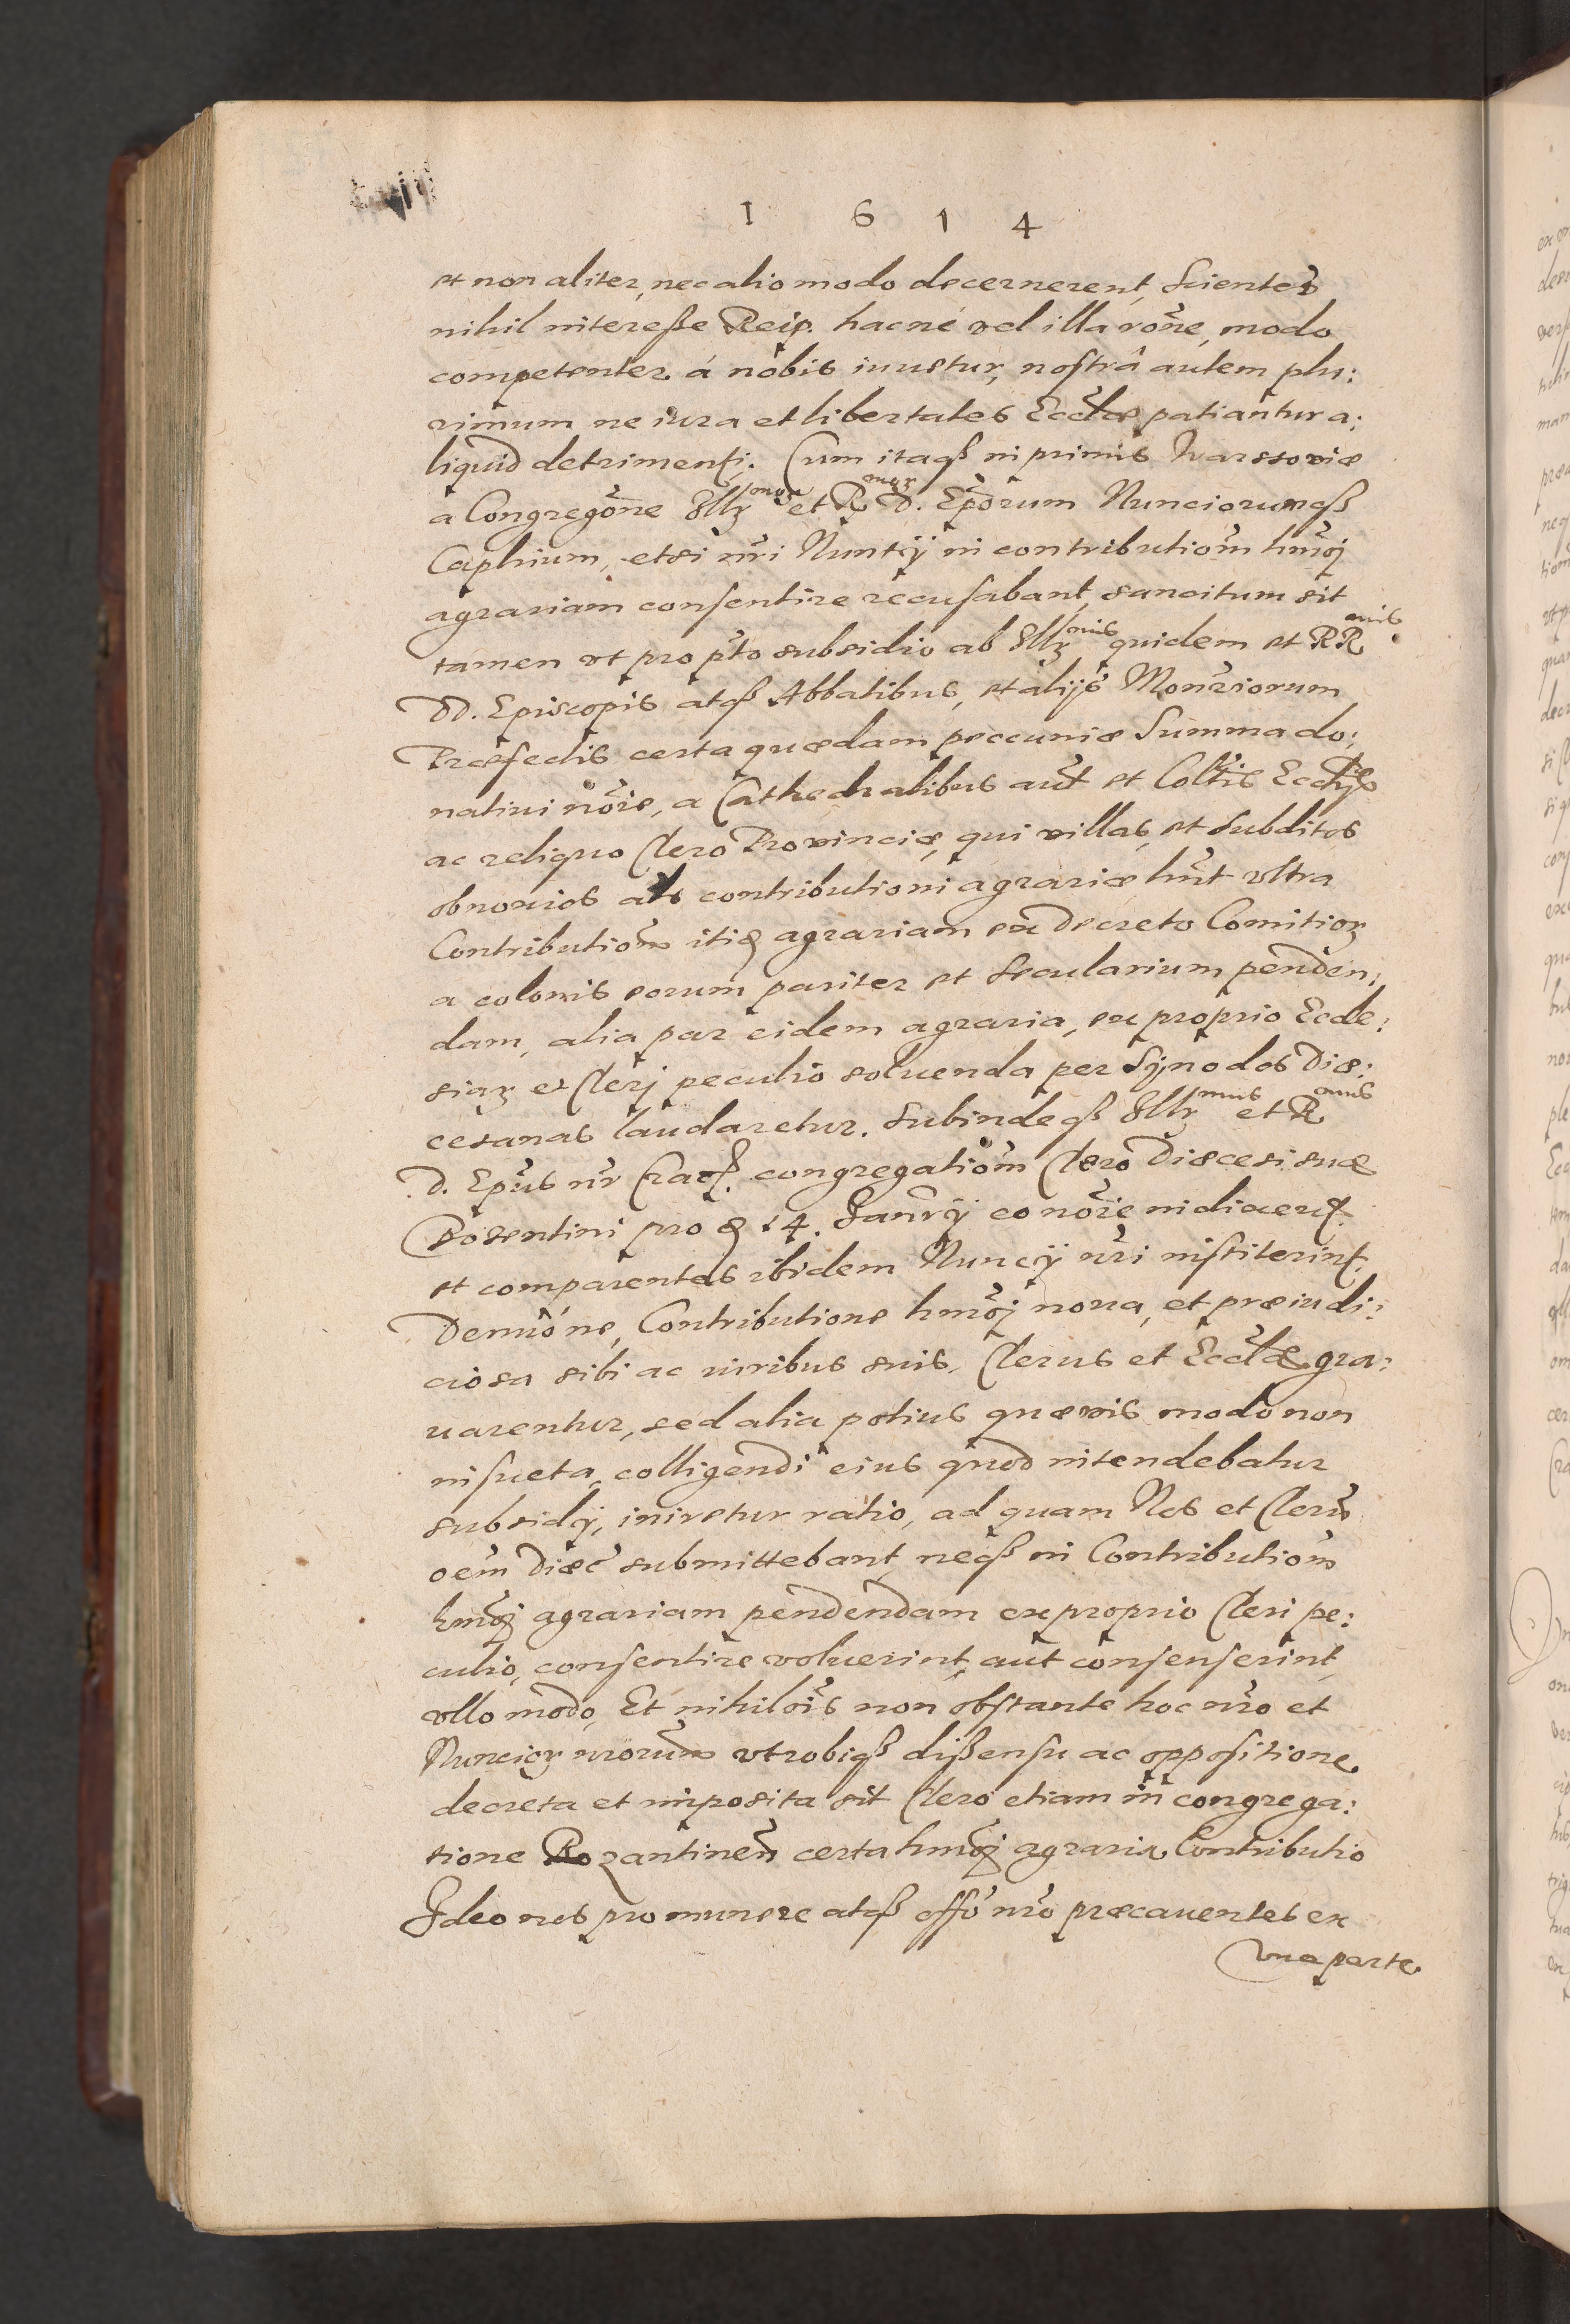 1 6 1 4
et non aliter, nec alio modo decernerent, scientes
nihil interesse Reip. hacne vel illa rõne, modo
competenter á nobis iuuetur, nostrâ autem plu:
rimum ne iura et libertates Ecclæ patiantur a:
liquid detrimenti. Cum itaqß in primis Warssoviæ
a Congregõne Illr̃morꝫ et R̃morꝫ D. Ep̃orum Nunciorumqß
Caplrium, etsi nr̃i Nuntÿ in contributiom̃ hm̃oj
agrariam consentire recusabant, sancitum sit
tamen vt pro pt̃o subsidio ab Illr̃mis quidem et RR̃mis
DD. Episcopis atqß Abbatibus, et alijs Monr̃iorum
Præfectis certa quædam peccuniæ Summa do:
natiui nõie, a Cathedralibus aut̃ et Coltis Ecclijs
ac reliquo Clero Provinciæ, qui villas, et subditos
obnoxios als contributioni agrariæ hñt vltra
Contributiom̃ itiꝫ agrariam ex Decreto Comitiorꝫ
a colonis eorum pariter et secularium penden:
dam, alia par eidem agraria, ex proprio Eccle:
siarꝫ et Clerj peculio soluenda per Synodos Diæ:
cesanas laudaretur. Subindeqß Illr̃mus et R̃mus
D. Ep̃us nr̃ Cracoß. congregatiom̃ Clero Diæcesi suæ
Posentini pro 14. Janr̃ÿ eo nõie indixerit.
et comparentes ibidem Nuncÿ nr̃i institerint.
Demũ ne, Contributione hm̃oj noua, et præiudi:
ciosa sibi ac iuribus suis, Clerus et Ecclæ gra:
uarentur, sed alia potius quævis modo non
insueta, colligendi eius quod intendebatur
subsidÿ, iniretur ratio, ad quam Nos et Clerũ
oem̃ Diæc̃ submittebant, neqß in Contributiom̃
hm̃oj agrariam pendendam ex proprio Cleri pe:
culio, consentire voluerint, aut consenserint
vllo modo, Et nihilõis non obstante hoc nr̃o et
Nunciorꝫ nr̃orum vtrobiqß dißensu ac oppositione
decreta et imposita sit Clero etiam in congrega:
tione Rozantinen̄ certa hm̃oj agraria Contributio
Ideo nos pro munere atqß offõ nr̃o præcauentes ex
vna parte